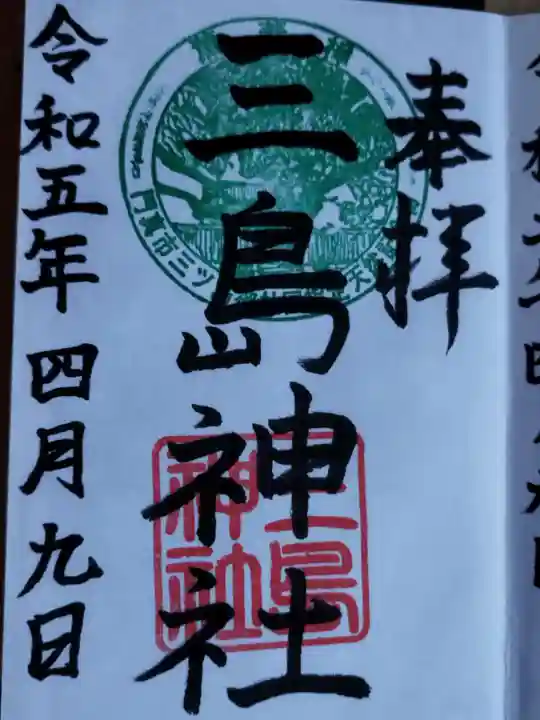 奉拝
三島神社
令和五年四月九日
門真市三ツ
三島
神社